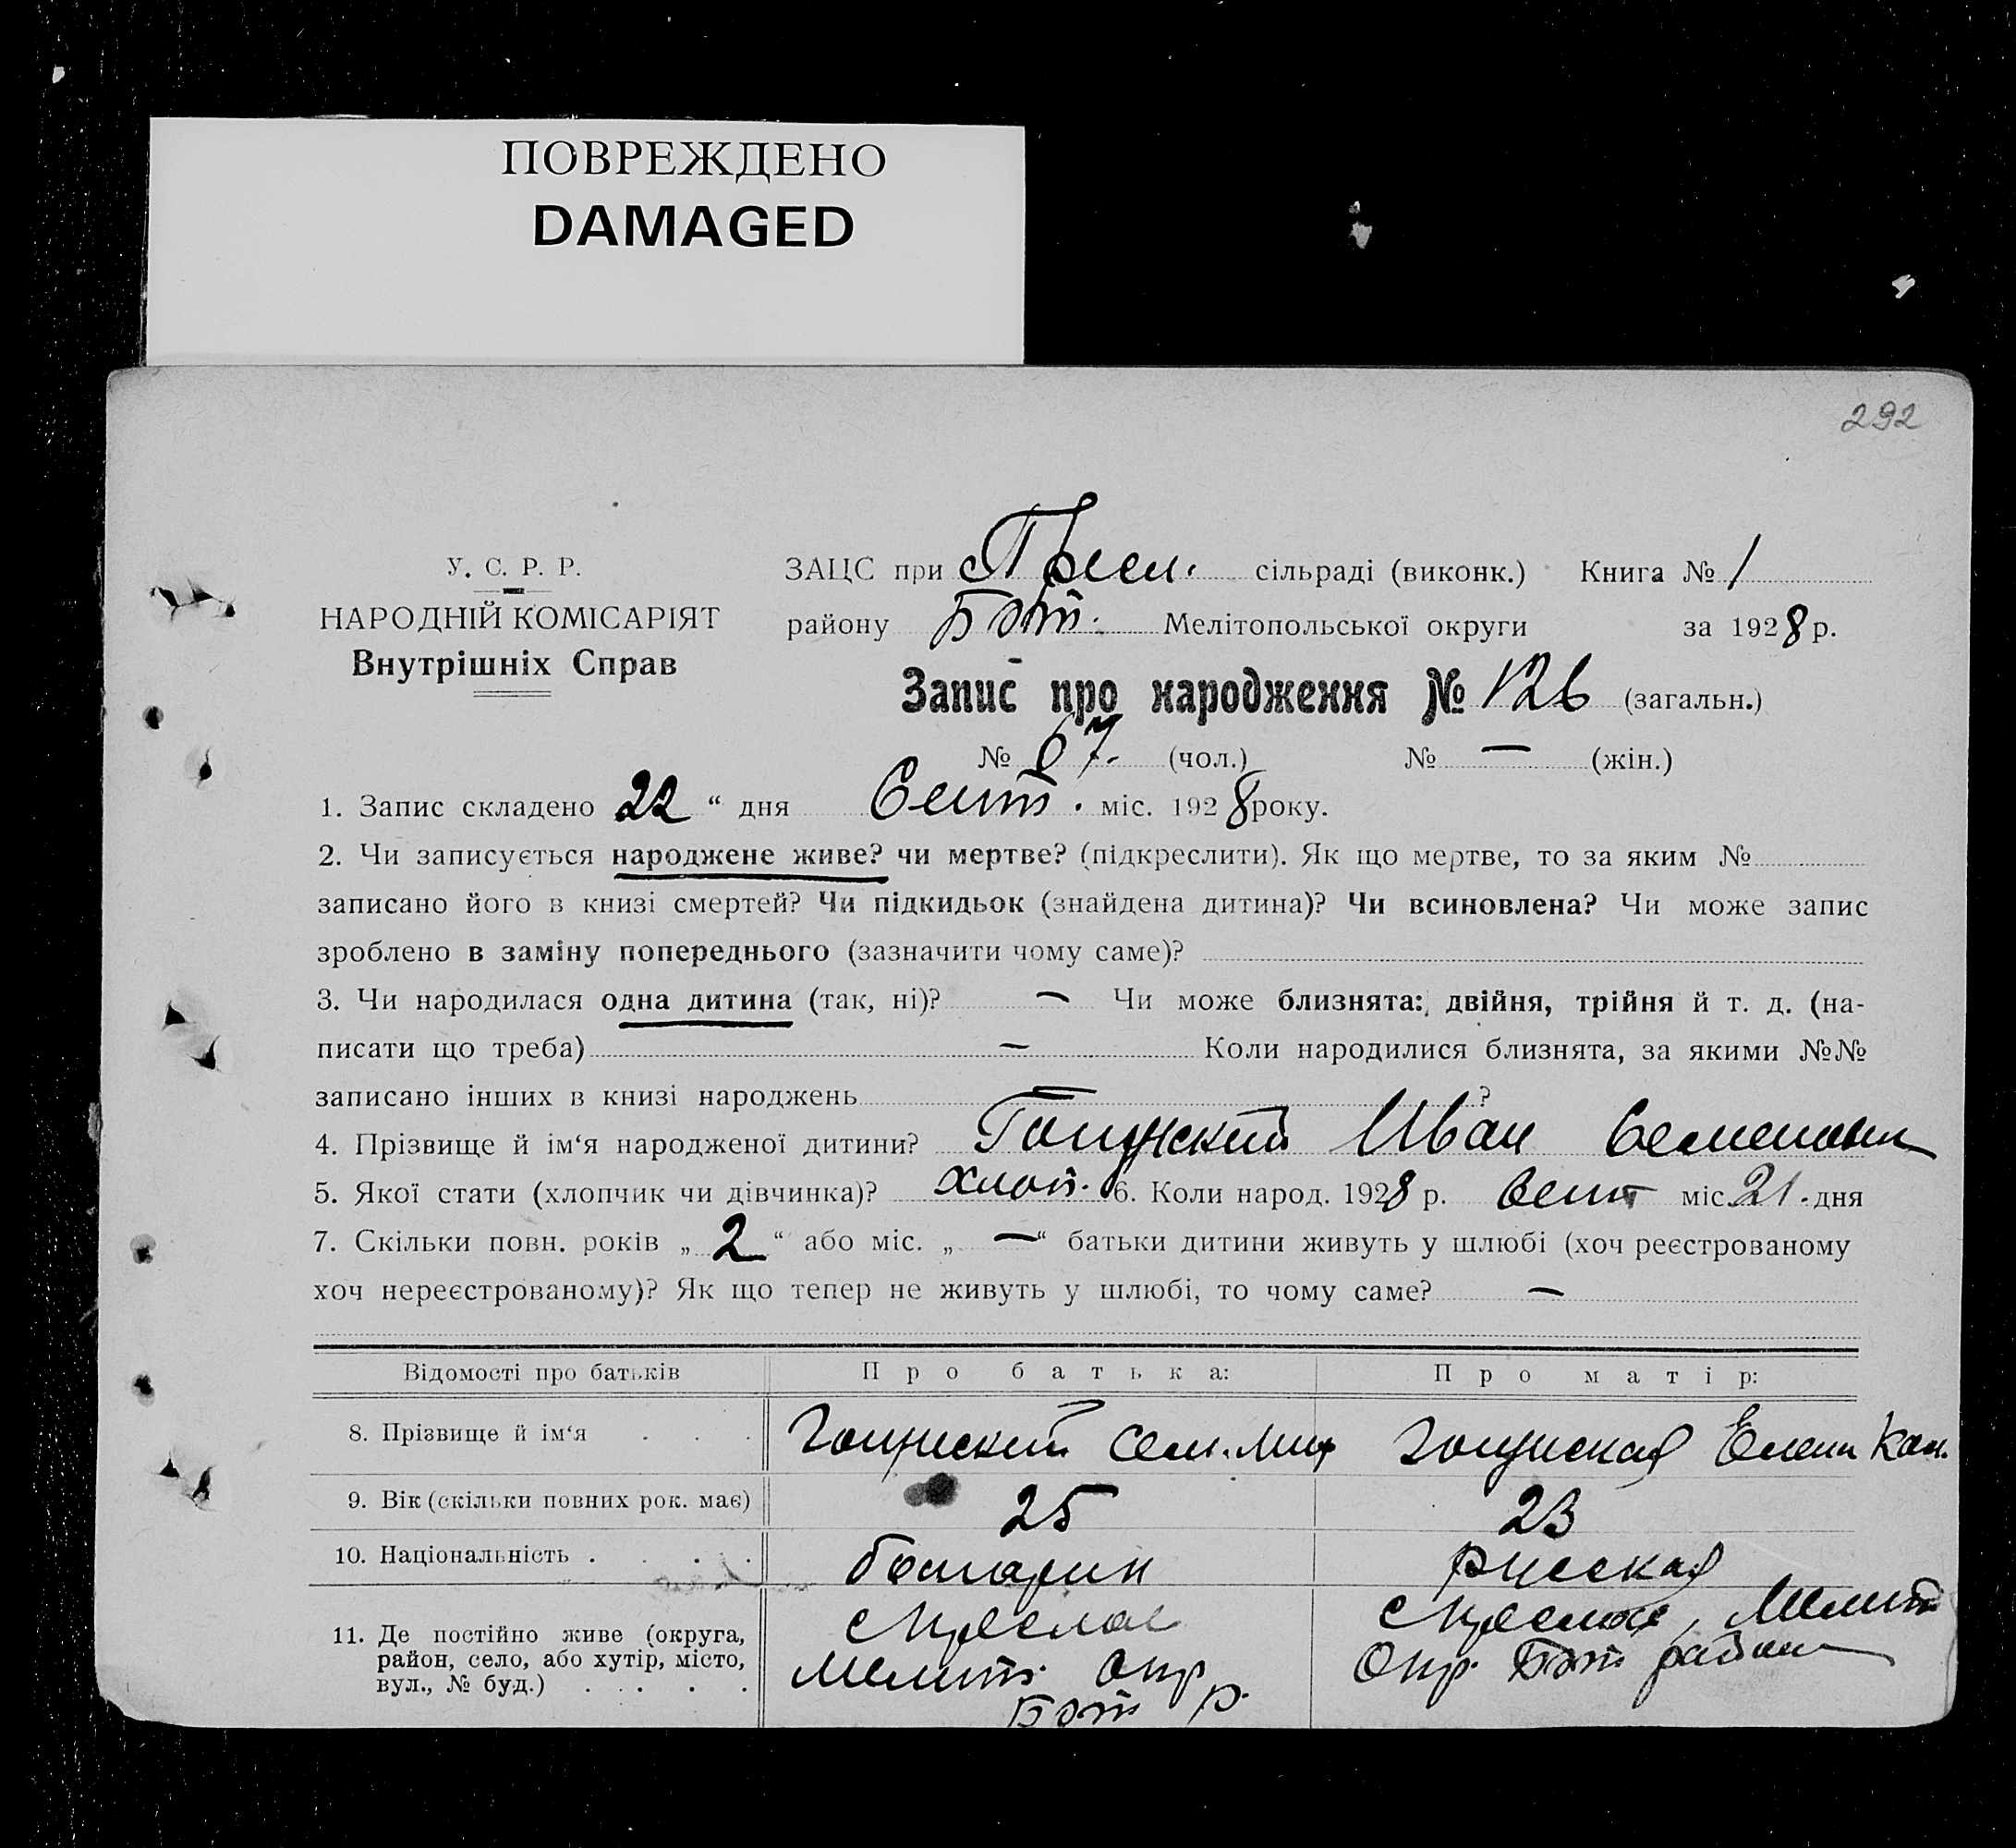 ПОВРЕЖДЕНО
DAMAGED
292
У. С. Р. Р.
НАРОДНІЙ КОМІСАРІЯТ
Внутрішніх Справ
ЗАЦС при Пресл. сільраді (виконк.) Книга № 1
району Бот. Мелітопольської округи за 1928 р.
Запис про народження № 126 (загальн.)
№ 67. (чол.) № — (жін.)
1. Запис складено 22 “ дня Сент. міс. 1928 року.
2. Чи записується народжене живе? чи мертве? (підкреслити). Як що мертве, то за яким №
записано його в книзі смертей? Чи підкидьок (знайдена дитина)? Чи всиновлена? Чи може запис
зроблено в заміну попереднього (зазначити чому саме)?
3. Чи народилася одна дитина (так, ні)? — Чи може близнята: двійня, трійня й т. д. (на-
писати що треба) — Коли народилися близнята, за якими №№
записано інших в книзі народжень — ?
4. Прізвище й ім‘я народженої дитини? Иван
5. Якої стати (хлопчик чи дівчинка)? хлоп. 6. Коли народ. 1928 р. Сент міс. 21. дня
7. Скільки повн. років „ 2 “ або міс. „ — “ батьки дитини живуть у шлюбі (хоч реєстрованому
хоч нереєстрованому)? Як що тепер не живуть у шлюбі, то чому саме? —
Відомості про батьків Про батька: Про матір:
8. Прізвище й ім‘я . . . Сем. Елена
9. Вік (скільки повних рок. має) 25 23
10. Національність . . . . болгарин русская
11. Де постійно живе (округа, с Преслав с Преслав, Мелит
район, село, або хутір, місто, Мелит. Окр Окр. Бот район
вул., № буд.) . . . . Бот р.